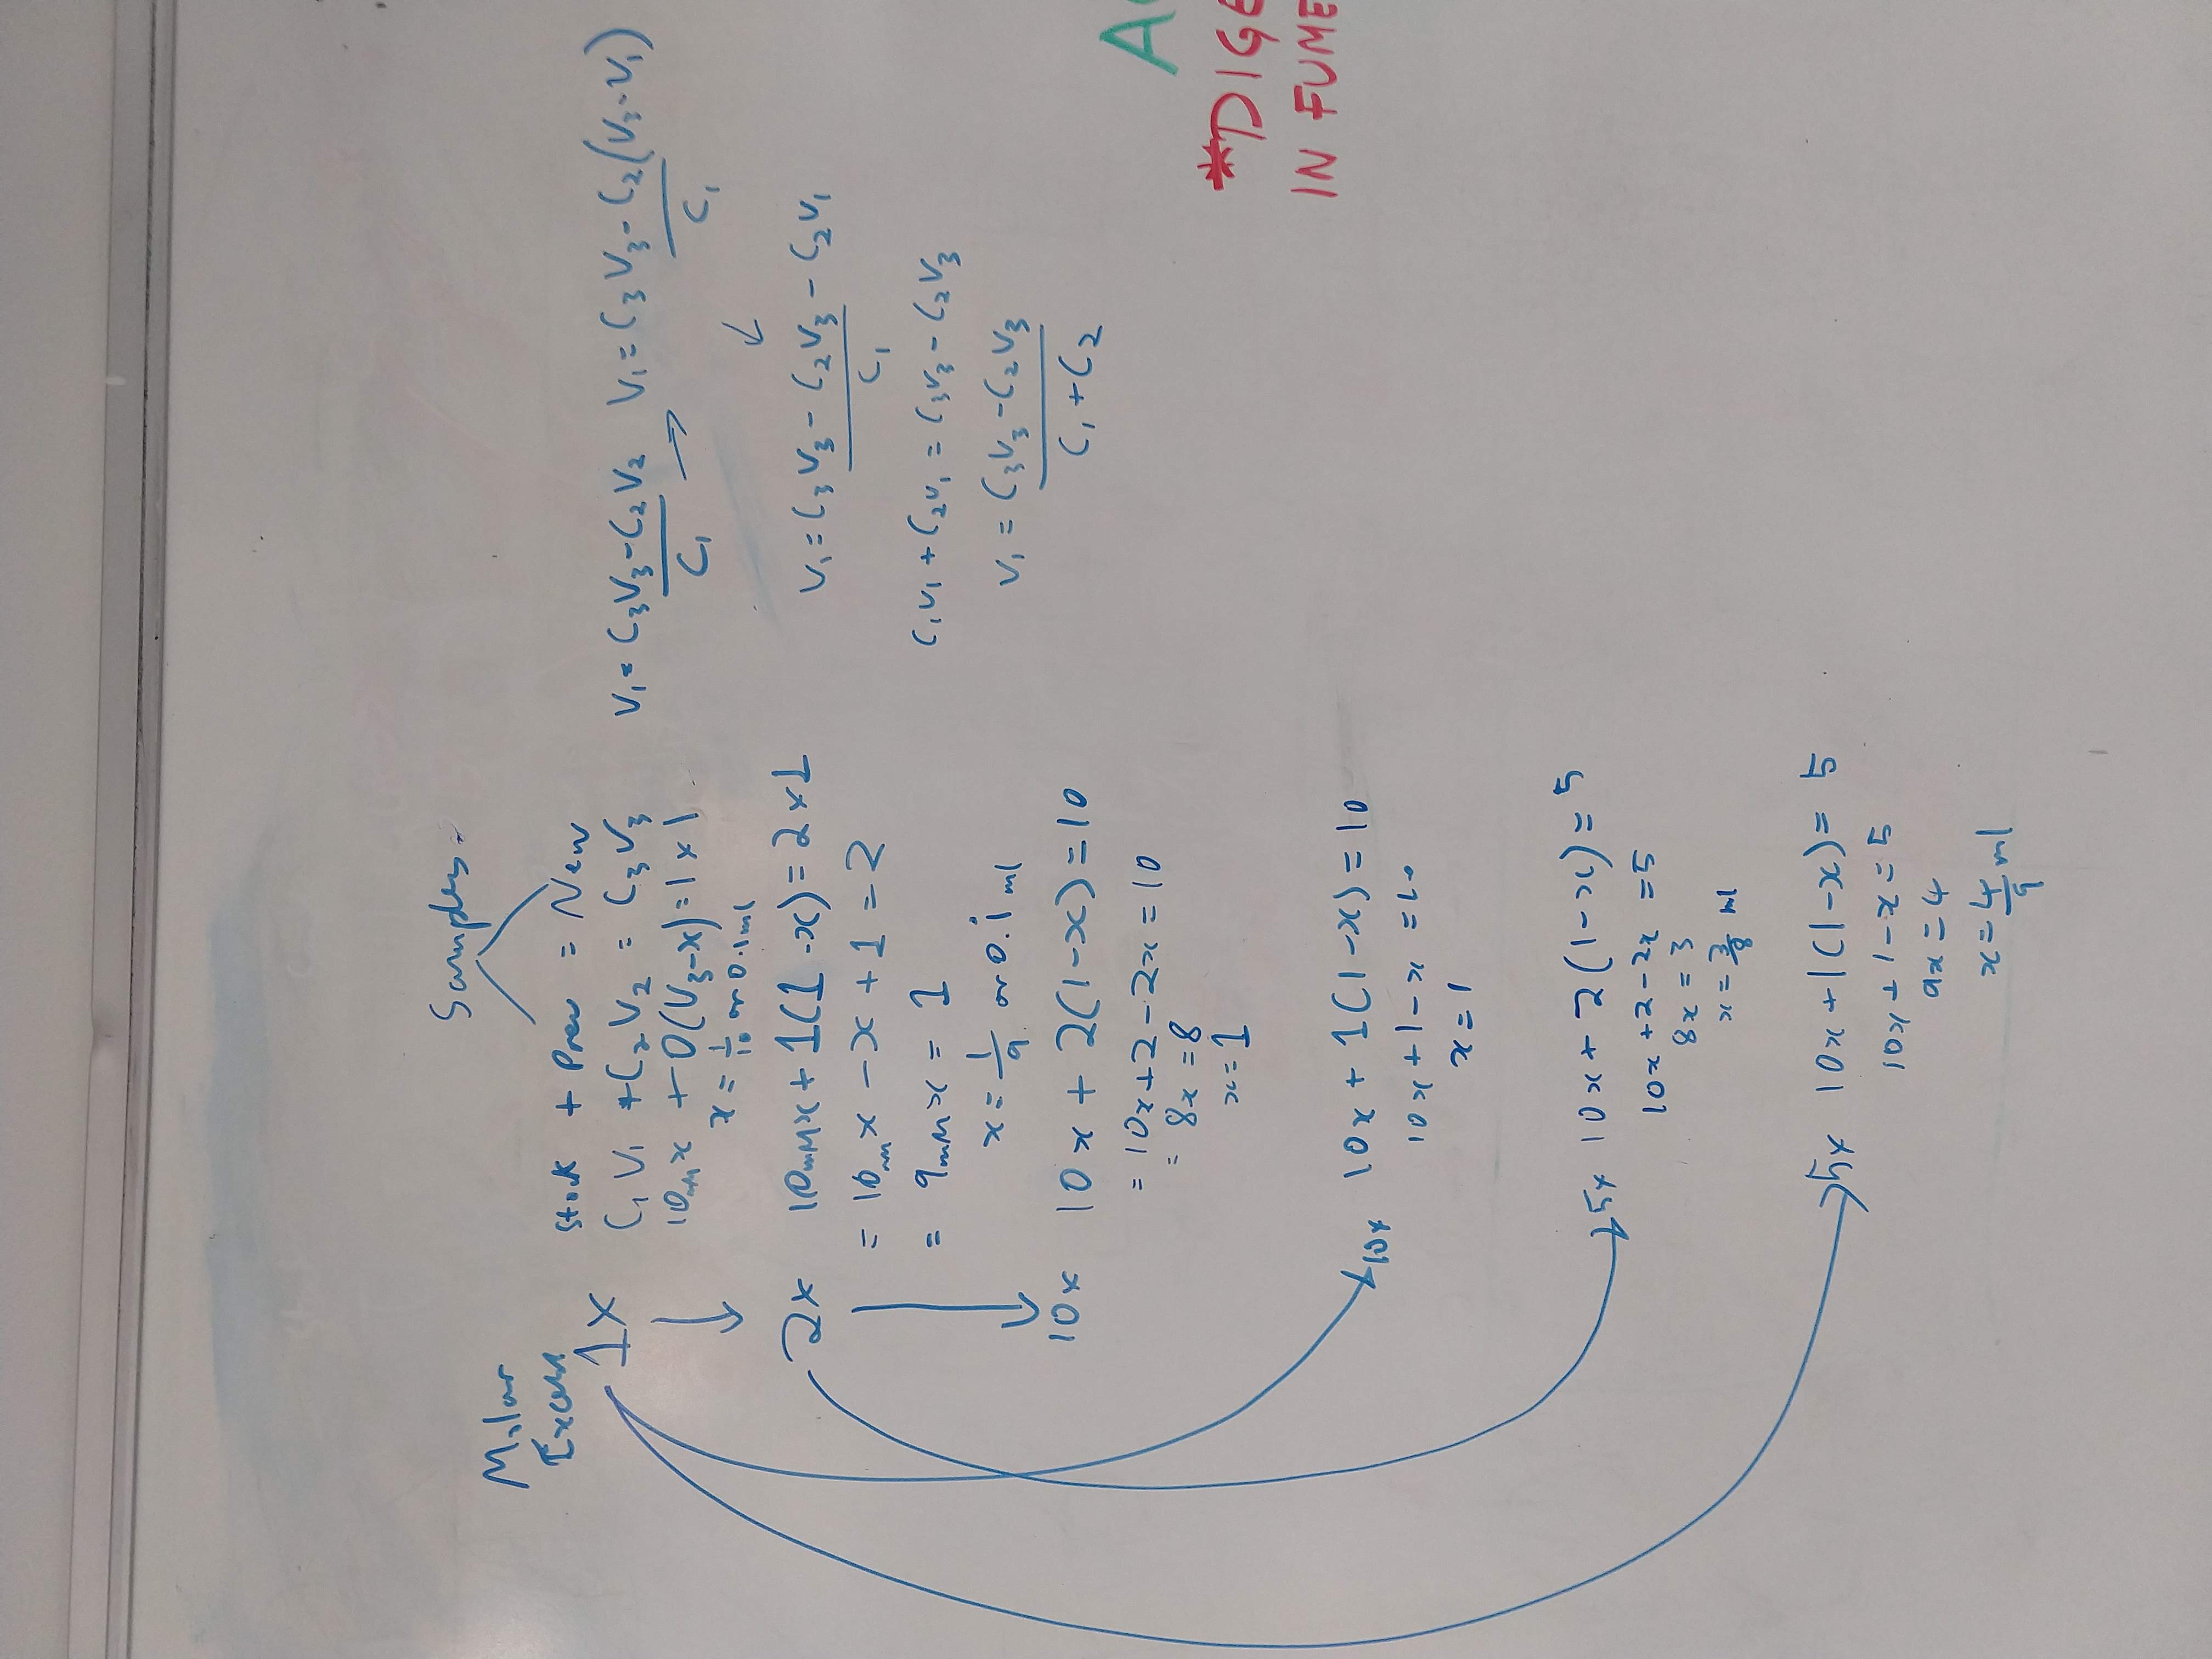 Samples
Molar
Excess
stock + Prev = New
1x
C₁V₁ + C₂V₂ = C₃V₃
10mM x + 0(V₃-x) = 1 x 1
x = 1/10 or 0.1ml
2x 10mM x + 1(1-x) = 2 x 1
= 10mM x - x + 1 = 2
= 9mM x = 1
x = 1/9 or 0.1̇ ml
10x 10x + 2(1-x) = 10
= 10x + 2 - 2x = 10
= 8x = 8
x = 1
10x 10x + 1(1-x) = 10
10x + 1 - x = 10
x = 1
5x 10x + 2(1-x) = 5
10x + 2 - 2x = 5
8x = 3
x = 3/8 ml
5x 10x + 1(1-x) = 5
10x + 1 - x = 5
9x = 4
x = 4/9 ml
V₁ = C₃V₃ - C₂V₂ / C₁ → V₁ = C₃V₃ - C₂(V₃-V₁) / C₁
V₁ = C₃V₃ - C₂V₃ - C₂V₁ / C₁
C₁V₁ + C₂V₁ = C₃V₃ - C₂V₃
V₁ = C₃V₃ - C₂V₃ / C₁ + C₂
*DIGE
IN FUME